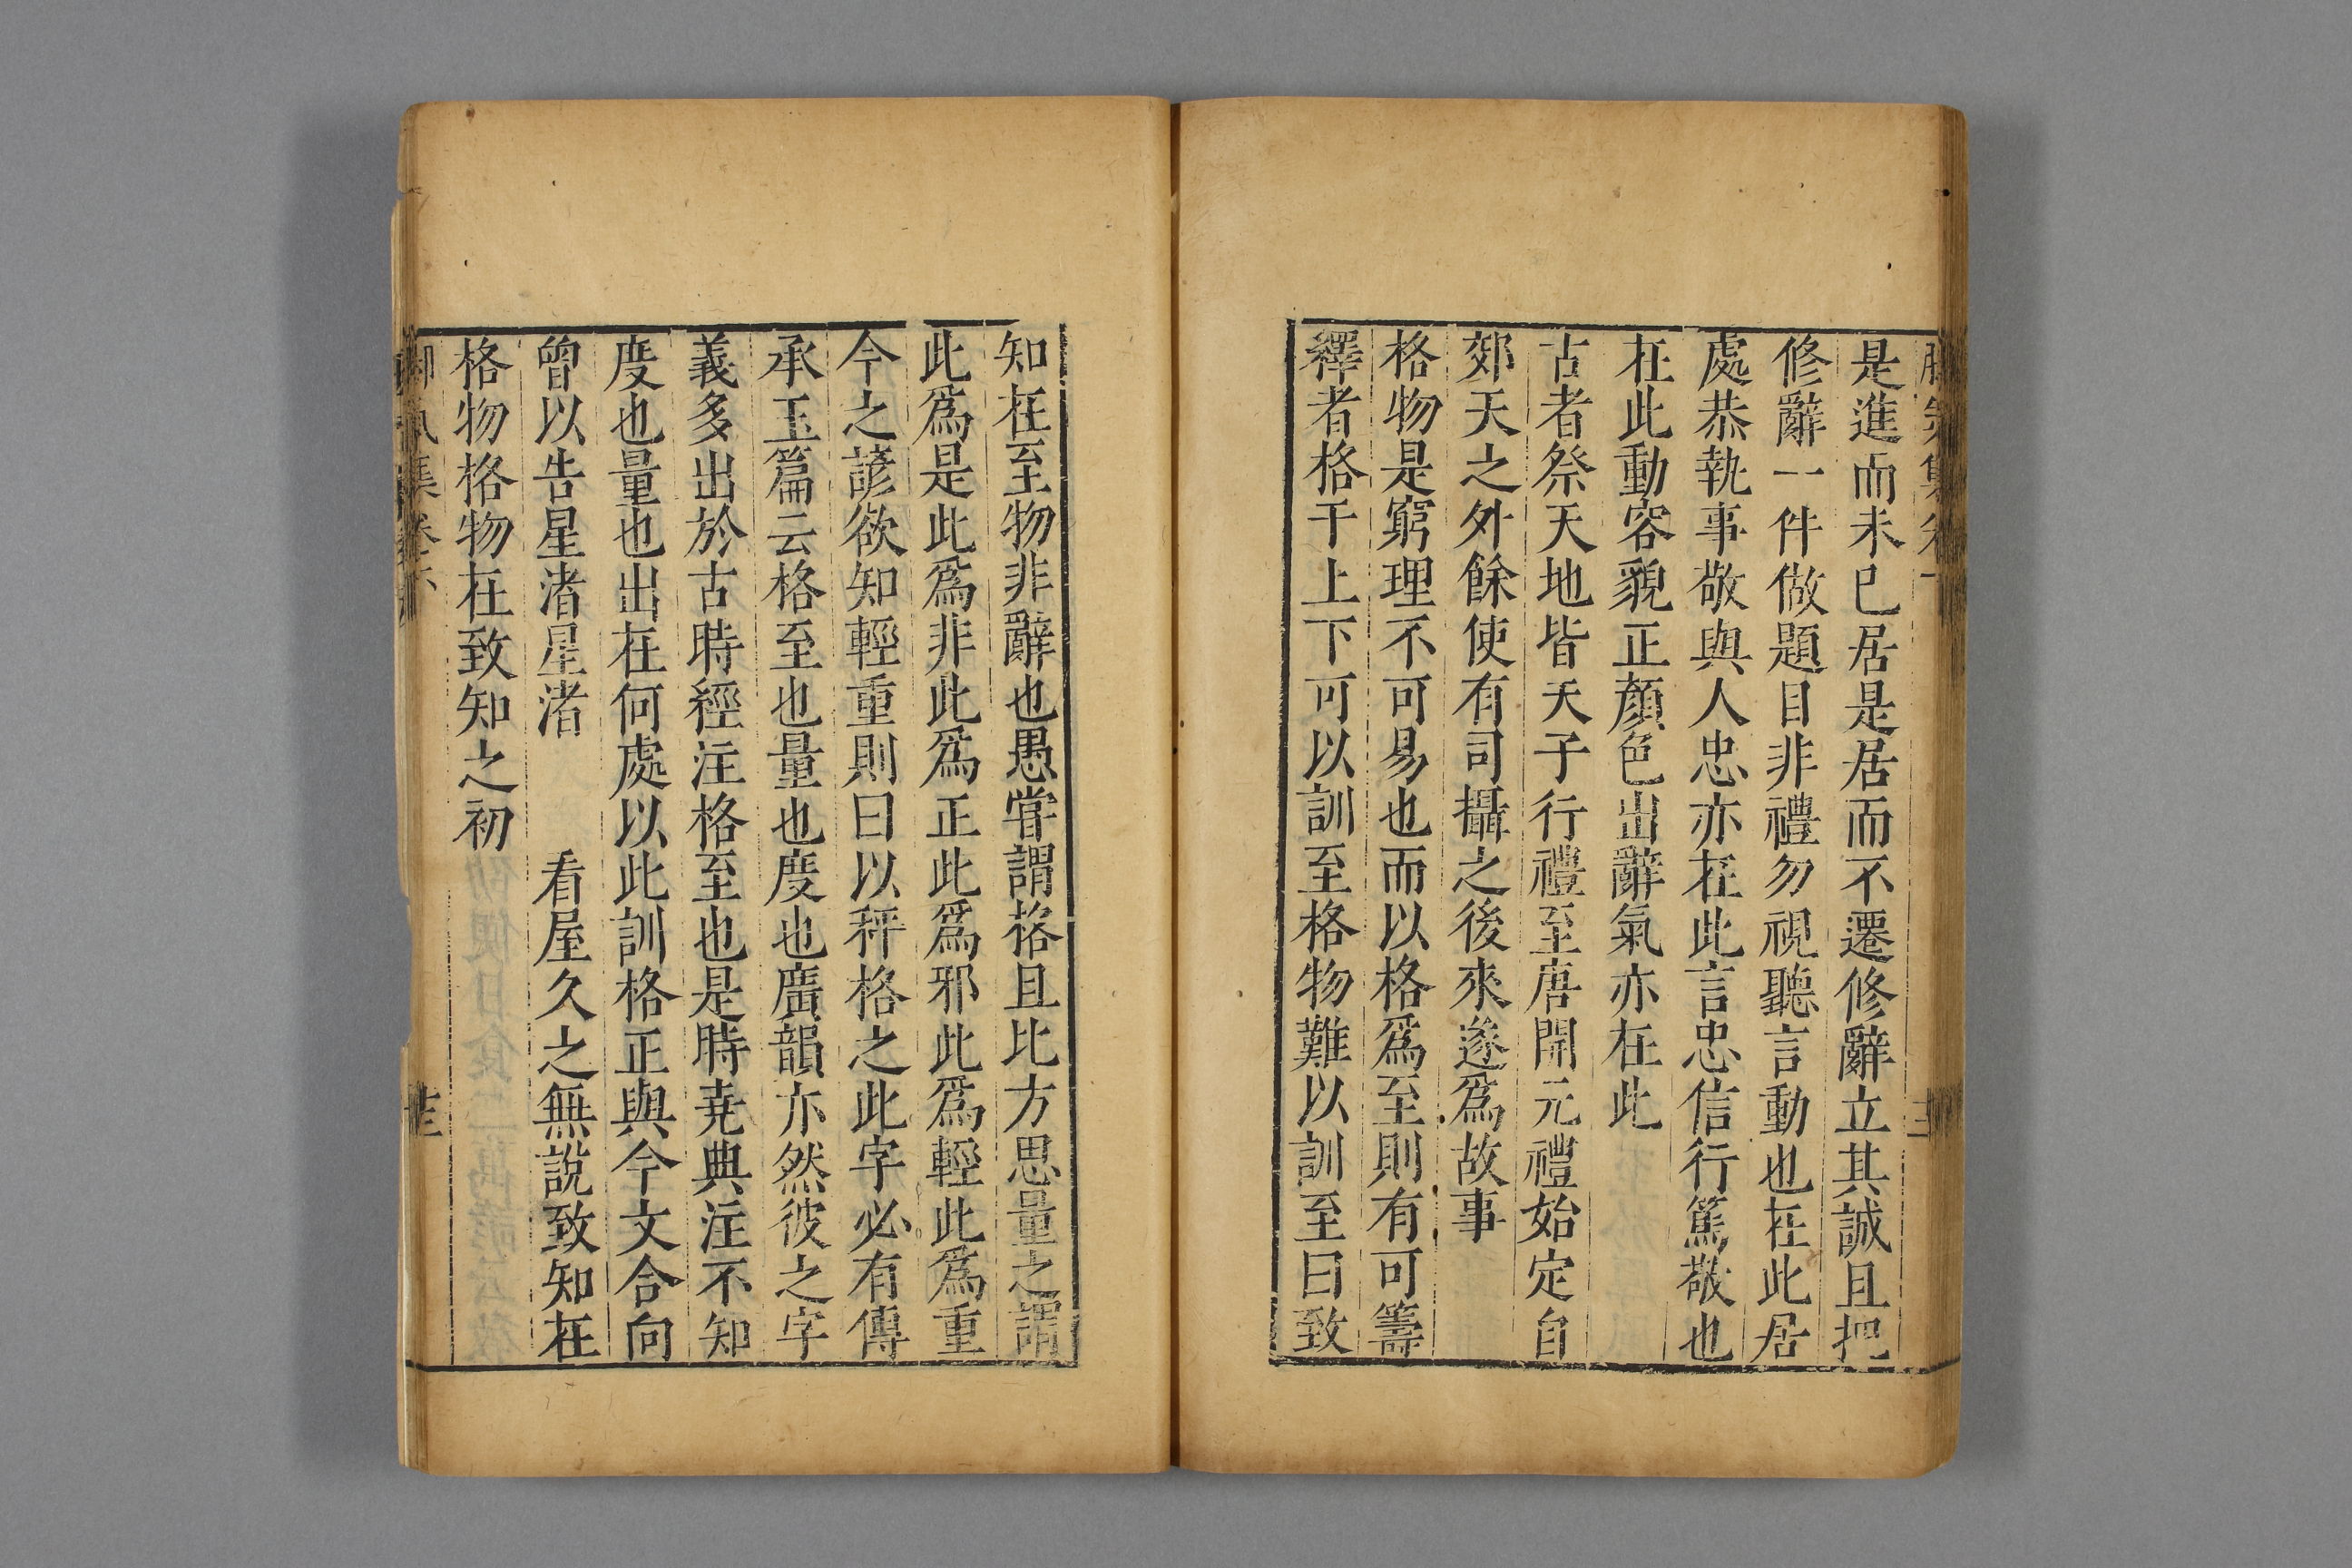 是進而未已居是居而不遷修辭立其誠且把
修辭一件做題目非禮勿視聽言動也在此居
處恭執事敬與人忠亦在此言忠信行篤敬也
在此動容貌正顏色出辭氣亦在此
古者祭天地皆天子行禮至唐開元禮始定自
郊天之外餘使有司攝之後來遂爲故事
格物是窮理不可易也而以格爲至則有可籌
繹者格于上下可以訓至格物難以訓至曰致
知在至物非辭也愚嘗謂格且比方思量之謂
此爲是此爲非此爲正此爲邪此爲輕此爲重
今之諺欲知輕重則曰以秤格之此字必有傳
承玉篇云格至也量也度也廣韻亦然彼之字
義多出於古時經注格至也是時堯典注不知
度也量也出在何處以此訓格正與今文合向
曾以告星渚星渚 看屋久之無說致知在
格物格物在致知之初
脚氣集卷下